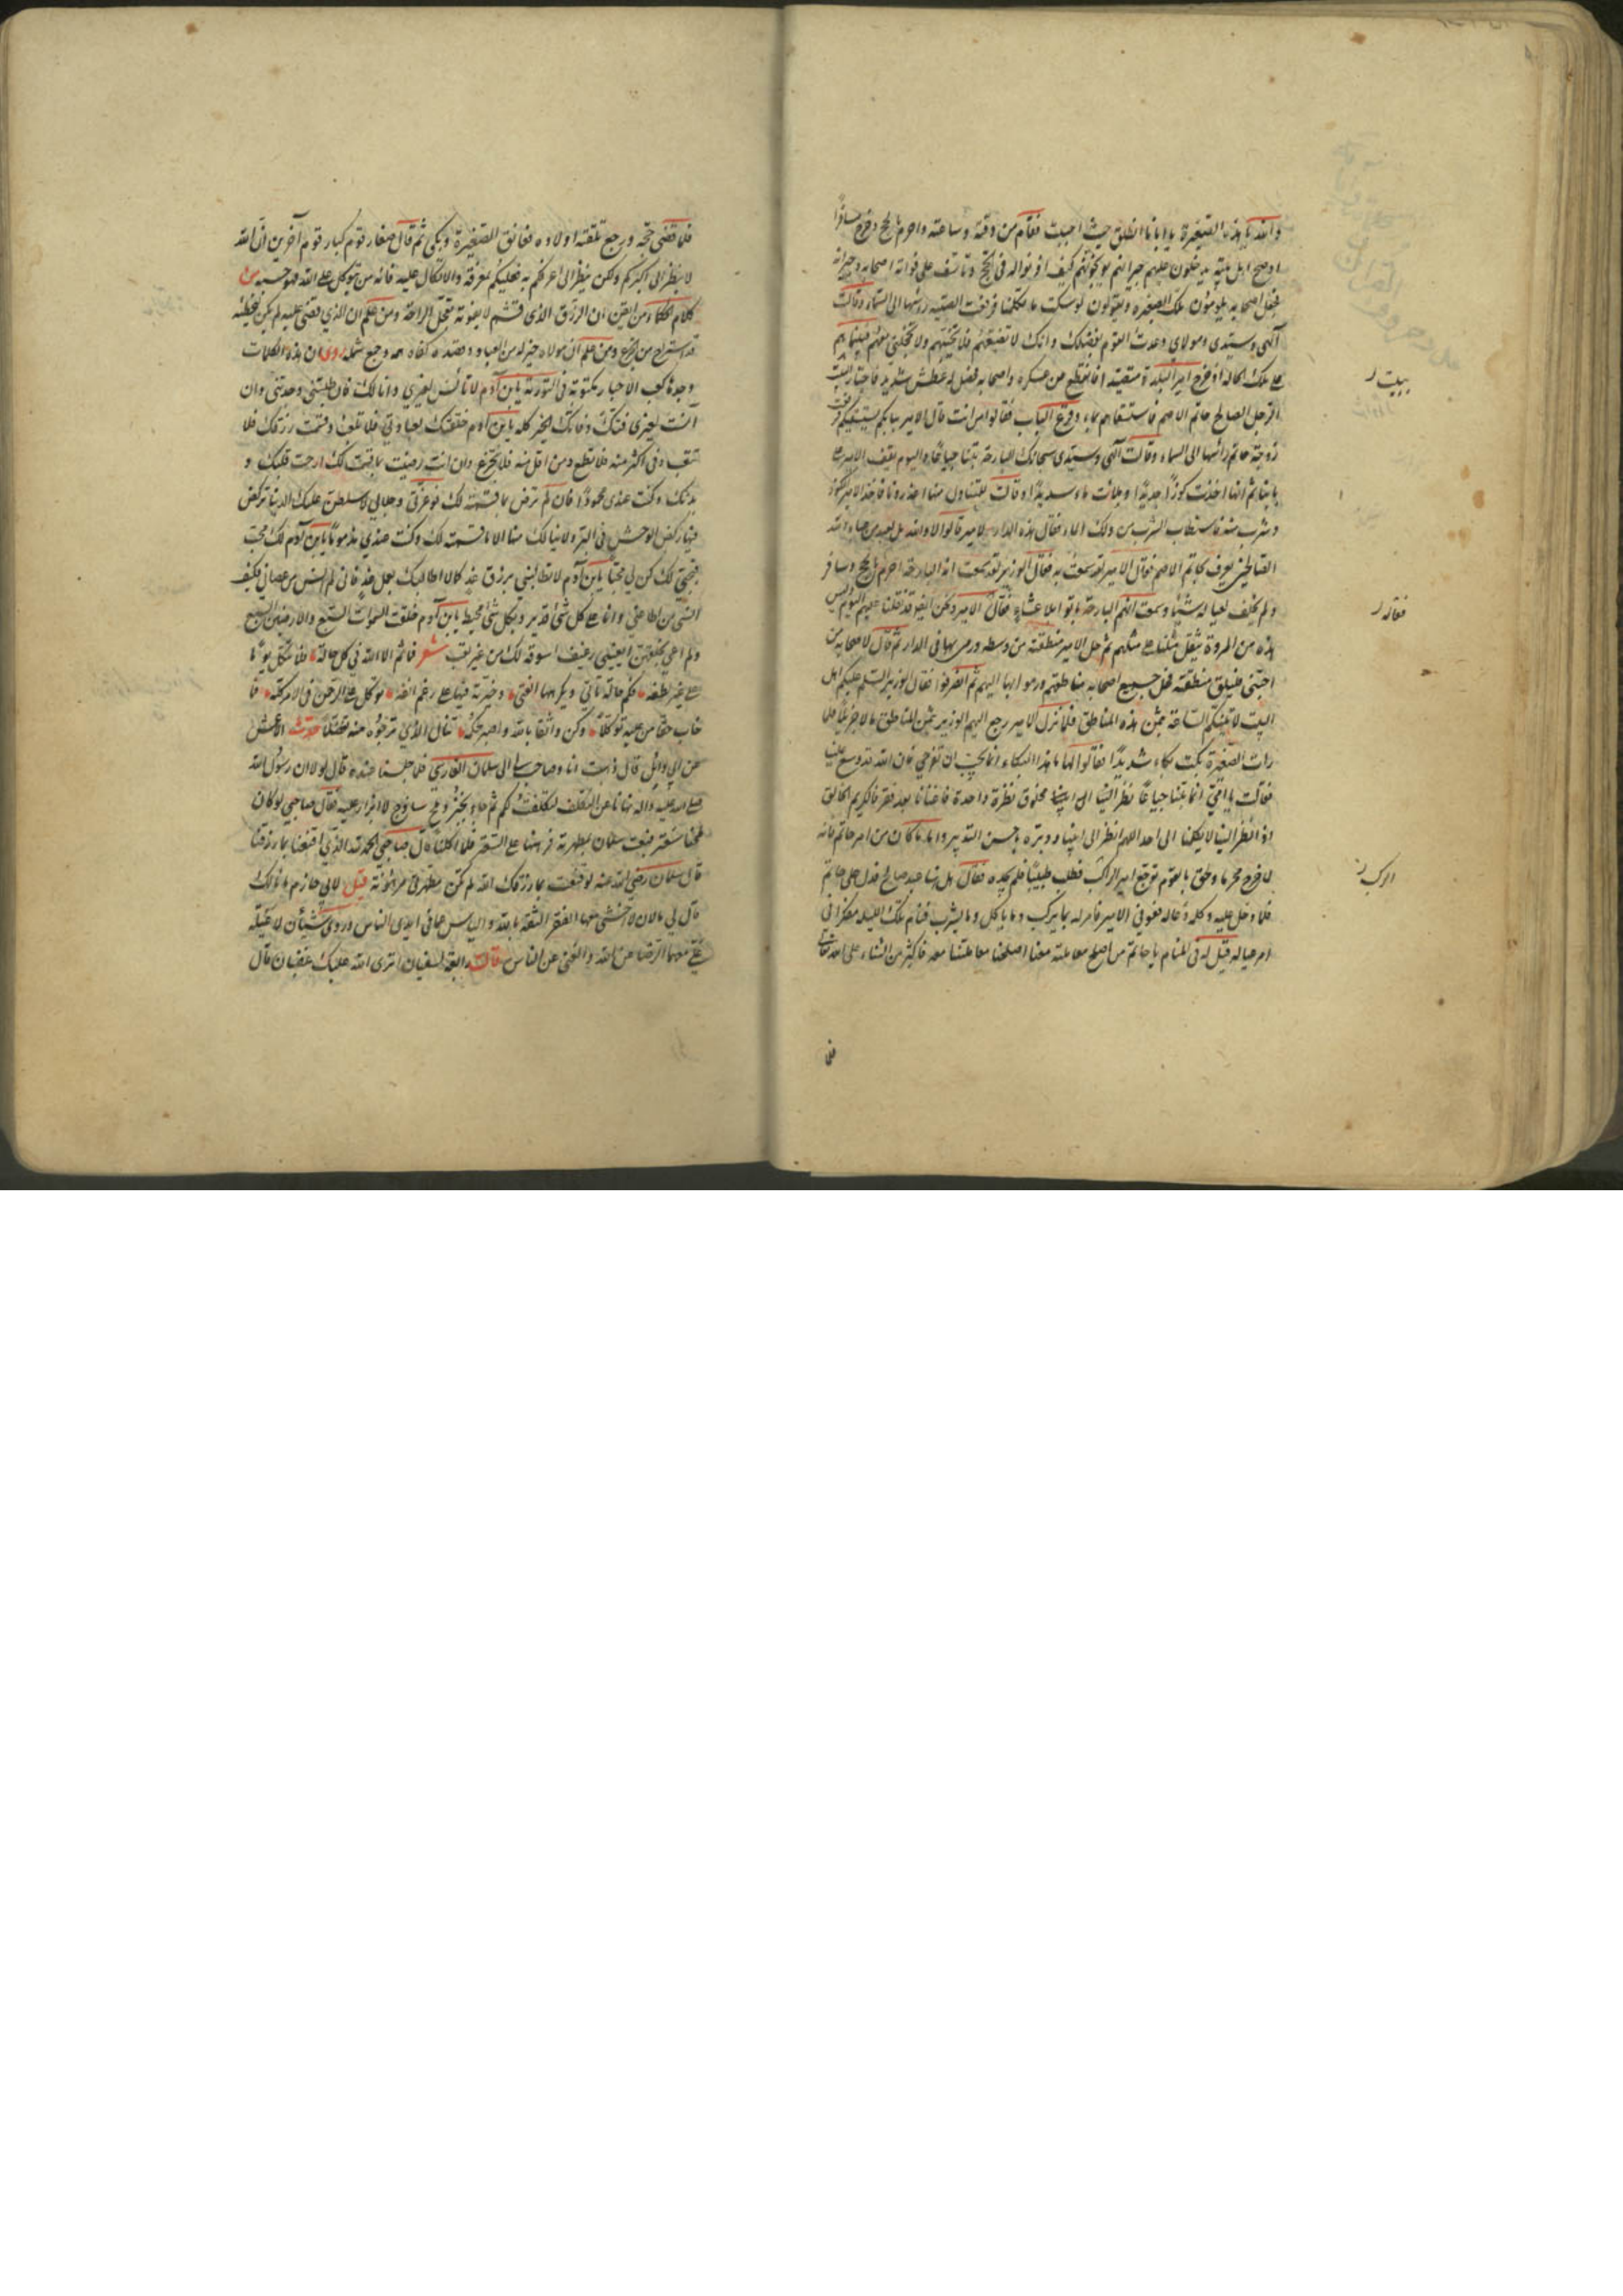 والله يا هذه الصغيرة يا ابانا انطلق حيث احببت فقام من وقته وساعته واحرم بالحج وخرج مسافرا
واصبح اهل بيته يدخلون عليهم جيرانهم يوبخونهم كيف اذنوا له في الحج وتاسف على فراقه اصحابه وجيرانه
فجعل اصحابه يلومون تلك الصغيرة ويقولون لو سكت ما تكلمنا فرفعت الصبية راسها الى السماء وقالت
الهي وسيدي ومولاي وعدت القوم بفضلك وانك لا تضيعهم فلا تخيبهم ولا تخجلني معهم فبينما هم
على تلك الحالة اذ خرج امير البلدة متصيدا فانقطع من عسكره واصحابه فحصل له عطش شديد فاجتاز ببيت
الرجل الصالح حاتم الاصم فاستسقاهم ماء وقرع الباب فقالوا من انت قال الامير ببابكم يستسقيكم فرفعت
زوجة حاتم راسها الى السماء وقالت الهي وسيدي سبحانك البارحة بتنا جياعا واليوم يقف الامير على
بابنا ثم انها اخذت كوزا جديدا وملأت ماء وقالت للمتناول منها اعذرونا فاخذ الامير الكوز
وشرب منه فاستطاب الشرب من ذلك الماء فقال هذه الدار لامير قالوا لا والله بل لعبد من عباد الله
الصالحين يعرف بحاتم الاصم فقال الامير لقد سمعت به فقال الوزير لقد سمعت انه البارحة احرم بالحج وسافر
ولم يخلف لعياله شيئا وسمعت انهم البارحة باتوا بلا عشاء فقال الامير ونحن ايضا قد ثقلنا عليهم اليوم وليس
هذه من المروة يثقل مثلنا على مثلهم ثم حل الامير منطقته من وسطه ورمى بها في الدار ثم قال لاصحابه من
احبني فليلق منطقته فحل جميع اصحابه مناطقهم ورموا بها اليهم ثم انصرفوا فقال الوزير السلام عليكم اهل
البيت لآتينكم الساعة بثمن هذه المناطق فلما نزل الامير رجع اليهم الوزير بثمن المناطق مالا جزيلا فلما
رات الصغيرة بكت بكاء شديدا فقالوا لها ما هذا البكاء انما يجب ان تفرحي فان الله قد وسع علينا
فقالت يا امي انما بتنا جياعا نظر الينا مخلوق نظرة واحدة فاغنانا بعد فقرنا فالكريم الخالق
اذا نظر الينا لا يكلنا الى احد اللهم انظر الى ابينا ودبره باحسن التدبير واما ما كان من امر حاتم فانه
لما خرج محرما ولحق بالقوم توجع امير الركب فطلب طبيبا فلم يجده فقال هل هنا عبد صالح فدل على حاتم
فلما دخل عليه وكلمه دعا له فعوفي الامير فامر له بما يركب وما ياكل وما يشرب فنام تلك الليلة مفكرا في
امر عياله فقيل له في المنام يا حاتم من اصلح معاملته معنا اصلحنا معاملتنا معه فاكثر من الثناء على الله تعالى
فلما
ببيت
فقال له
الركب
فلما قضى حجه ورجع تلقته اولاده فعانق الصغيرة وبكى ثم قال صغار قوم كبار قوم آخرين ان الله
لا ينظر الى اكبركم ولكن ينظر الى اعرفكم به فعليكم بمعرفته والاتكال عليه فانه من توكل على الله فهو حسبه من
كلام الحكماء من ايقن ان الرزق الذي قسم لا يفوته تعجل الراحة ومن علم ان الذي قضي عليه لم يكن ليخطئه
قد استراح من الجزع ومن علم ان مولاه خير له من العباد وقصده كفاه همه وجمع شمله روي ان هذه الكلمات
وجدها كعب الاحبار مكتوبة في التورية يا بن آدم لا تانس بغيري وانا لك فان طلبتني وجدتني وان
آنست بغيري فتك وفاتك الخير كله يا بن آدم خلقتك لعبادتي فلا تلعب وقسمت رزقك فلا
تتعب وفي اكثر منه فلا تطمع ومن اقل منه فلا تجزع وان انت رضيت بما قسمت لك ارحت قلبك و
بدنك وكنت عندي محمودا فان لم ترض بما قسمته لك فوعزتي وجلالي لاسلطن عليك الدنيا تركض
فيها ركض الوحش في البر ولا ينالك منها الا ما قسمته لك وكنت عندي مذموما يا بن آدم انا لك محب
فبحقي لك كن لي محبا يا بن آدم لا تطالبني برزق غد كما لا اطالبك بعمل غد فاني لم انس من عصاني فكيف
انسى من اطاعني وانا على كل شئ قدير وبكل شئ محيط يا بن آدم خلقت السموات السبع والارضين السبع
ولم اعي بخلقهن ايعييني رغيف اسوقه لك من غير تعب شعر فما ثم الا الله في كل حالة فلا تتكل يوما
على غير لطفه فكم حالة تاتي ويكرهها الفتى وخيرته فيها على رغم انفه توكل على الرحمن في الامر كله فما
خاب حقا من عليه توكلا وكن واثقا بالله واصبر لحكمه تنال الذي ترجوه منه تفضلا حدث الاعمش
عن ابي وائل قال ذهبت انا وصاحب لي الى سلمان الفارسي فلما جلسنا عنده قال لولا ان رسول الله
صلى الله عليه واله نهانا عن التكلف لتكلفت لكم ثم جاء بخبز وملح ساذج لا ابزار عليه فقال صاحبي لو كان
ملحنا سعتر فبعث سلمان بمطهرته فرهنها على السعتر فلما اكلنا قال صاحبي الحمد لله الذي اقنعنا بما رزقنا
قال سلمان رضي الله عنه لو قنعت بما رزقك الله لم تكن مطهرتي مرهونة قيل لابي حازم ما مالك
قال لي مالان لا اخشى معهما الفقر الثقة بالله والياس مما في ايدي الناس وروي شيئان لا عيلة
علي معهما الرضا عن الله والغنى عن الناس قالت رابعة لسفيان اترى الله عليك غضبان قال